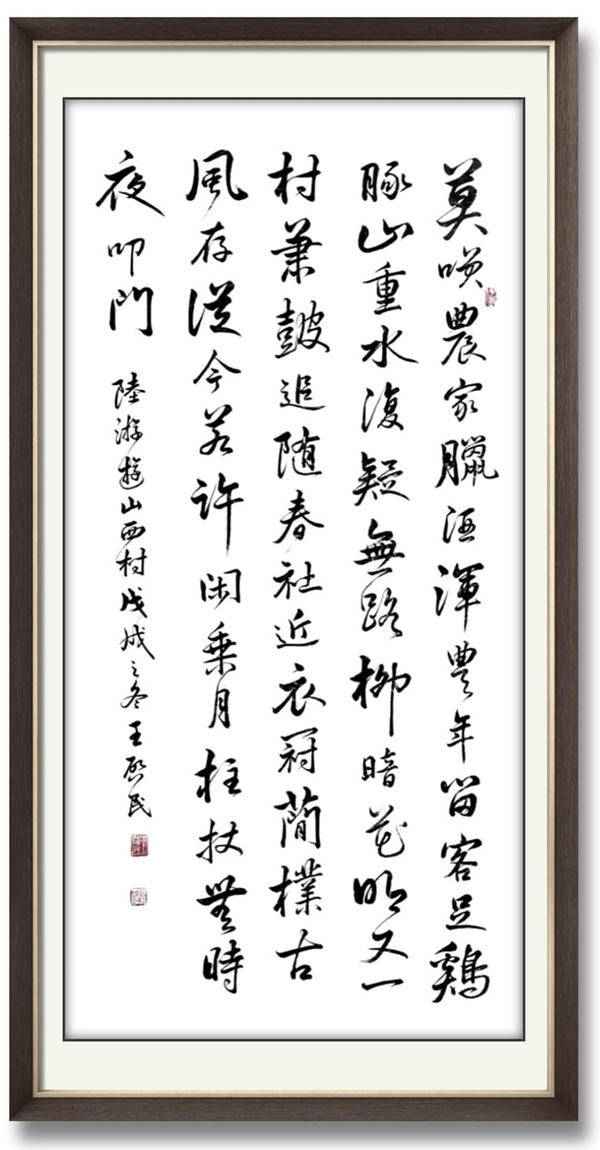 莫咲農家臘酒渾豐年留客足鷄
豚山重水復疑無路柳暗花明又一
村簫鼓追随春社近衣冠簡樸古
風存從今若許閑乘月柱杖無時
夜叩門
陸游遊山西村戊戌之冬王啟民